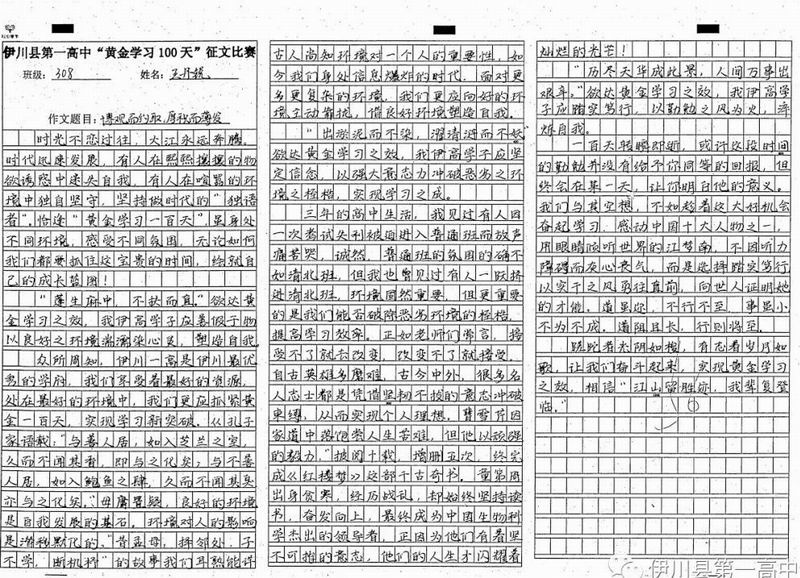 伊川县第一高中“黄金学习100天”征文比赛
班级：308 姓名：
作文题目：博观而约取，厚积而薄发
时光不恋过往，大江永远奔腾。
时代迅速发展，有人在熙熙攘攘的物
欲诱惑中迷失自我，有人在喧嚣的环
境中独自坚守，坚持做时代的“独语
者”。恰逢“黄金学习一百天”虽身处
不同环境，感受不同氛围，无论如何
我们都要抓住这宝贵的时间，绘就自
己的成长蓝图！
“蓬生麻中，不扶而直”欲达黄
金学习之效，我伊高学子应善假于物
以良好之环境濡濡染心灵，塑造自我。
众所周知，伊川一高是伊川最优
秀的学府，我们享受着最好的资源，
处在最好的环境中，我们更应抓紧黄
金一百天，实现学习新突破。《孔子
家语载：“与善人居，如入芝兰之室，
久而不闻其香，即与之化矣；与不善
人居，如入鲍鱼之肆，久而不闻其臭
亦与之化矣。”毋庸置疑，良好的环境
是自我发展的基石。环境对人的影响
是潜移默化的“昔孟母，择邻处，子
不学，断机杼”的故事我们耳熟能详
古人尚知环境对一个人的重要性，如
今我们身处信息爆炸的时代，面对更
多更复杂的环境，我们更应向好的环
境主动靠拢，借良好环境塑造自我。
“出淤泥而不染，濯清涟而不妖”
欲达黄金学习之效，我伊高学子应坚
定信念，以强大意志力冲破恶劣之环
境之桎梏，实现学习之成。
三年的高中生活，我见过有人因
一次考试失利被迫进入普通班而放声
痛苦哭，诚然，普通班的氛围的确不
如清北班，但我也曾见过有人一跃挤
进清北班，环境固然重要，但更重要
的是我们能否破除恶劣环境的桎梏，
提高学习效率。正如老师们常言，接
受不了就去改变，改变不了就接受。
自古英雄多磨难，古今中外，很多名
人志士都是凭借坚韧不拔的意志冲破
束缚，从而实现个人理想，曹雪芹因
家道中落饱尝人生苦难，但他以顽强
的毅力，“披阅十载，增删五次，终完
成《红楼梦》这部千古奇书。童第周
出身贫寒，经历战乱，却始终坚持读
书，奋发向上，最终成为中国生物科
学杰出的领导者，正因为他们有着坚
不可摧的意志，他们的人生才闪耀着
灿烂的光芒！
“历尽天华成此景，人间万事出
艰辛。”欲达黄金学习之效，我伊高学
子应踏实笃行，以勤勉之风为火，淬
炼自我。
一百天转瞬即逝，或许这段时间
的勤勉并没有给予你同等的回报，但
终会在某一天，让你明白他的意义。
我们与其空想，不如趁着这大好机会
奋起学习，感动中国十大人物之一，
用眼睛倾听世界的江梦南，不因听力
障碍而灰心丧气，而是选择踏实笃行，
以实干之风勇往直前，向世人证明她
的才能。道虽迩，不行不至，事虽小
不为不成。道阻且长，行则将至。
蹉跎者光阴如梭，有志者岁月如
歌，让我们奋斗起来，实现黄金学习
之效，相信“江山留胜迹，我辈复登
临。”
伊川县第一高中